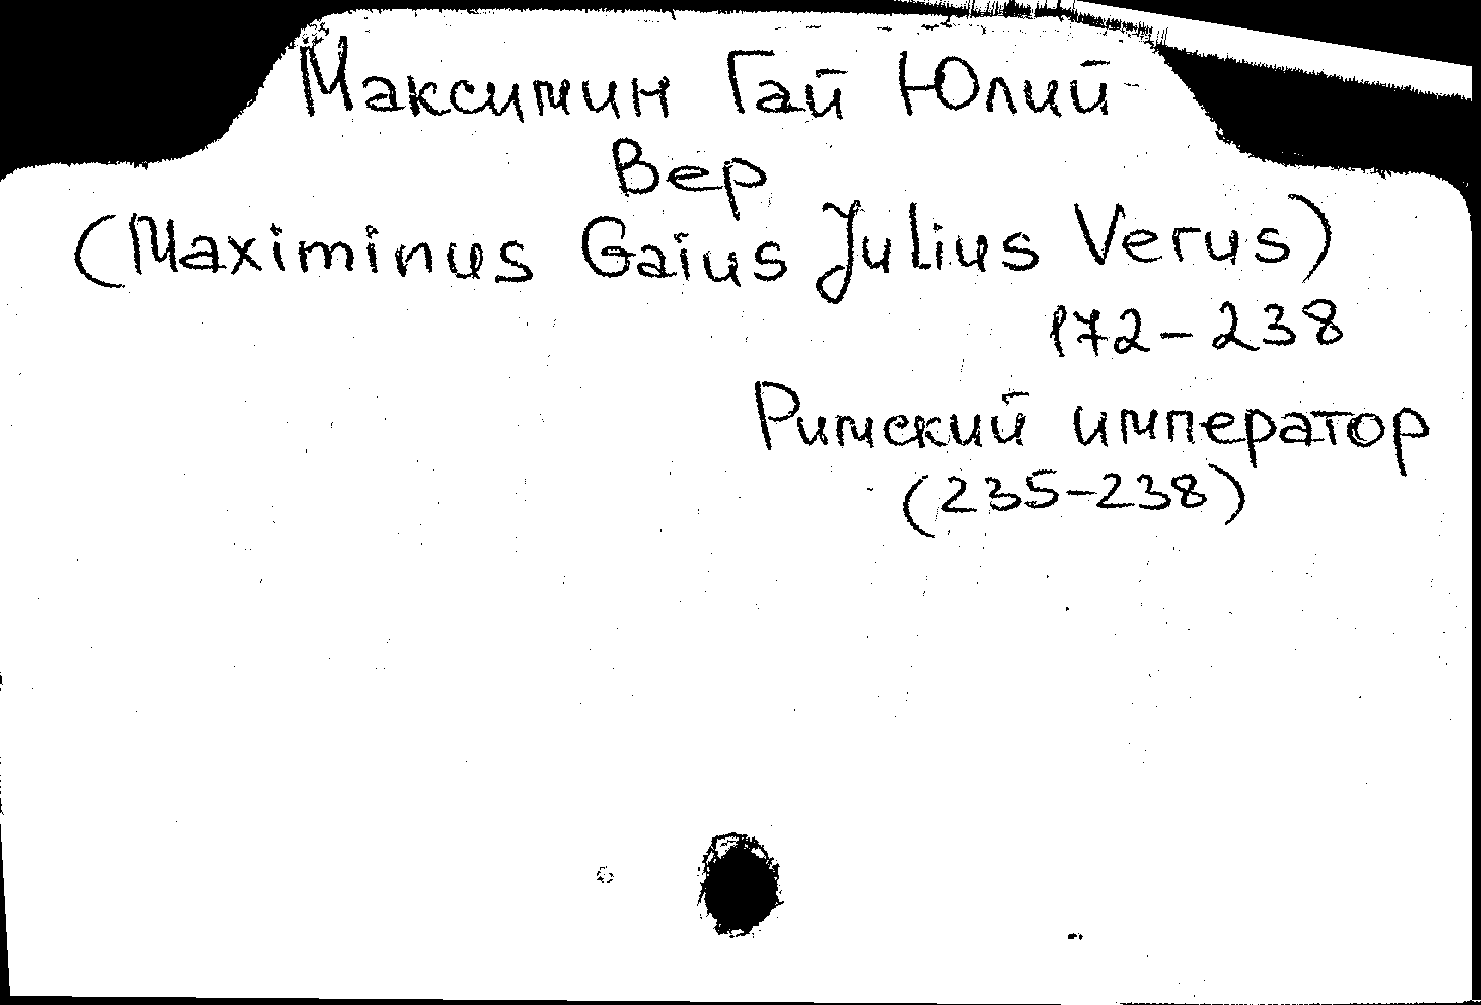 Максимин Гай Юлий
Вер
(Maximinus Gaius Julius Verus)
172-238
Римский император
(235-238)